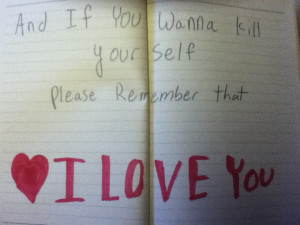 And If You Wanna kill
your self
please Remember that
I LOVE You